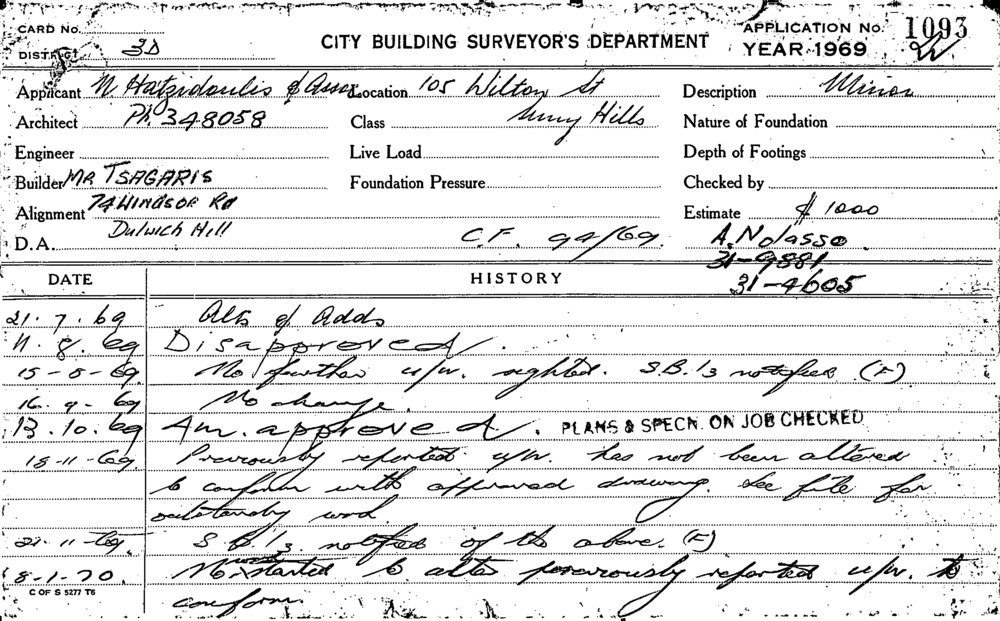 CARD No.
DISTRICT 3D
CITY BUILDING SURVEYOR'S DEPARTMENT
APPLICATION No. 1093
YEAR 1969
Applicant N. Hatzidoulis & Assoc Location 105 Wilton St Description Minor
Architect Ph. 348058 Class Surry Hills Nature of Foundation
Engineer Live Load Depth of Footings
Builder MR TSAGARIS Foundation Pressure Checked by
Alignment 74 WINDSOR RD Estimate $ 1000
D.A. Dulwich Hill C.F. 94/69. A. Nolasso
31-9881
31-4605
DATE HISTORY
21.7.69 Alts & Adds
11.8.69 Disapproved.
15-8-69. No further u/w. sighted. S.B.I's notified (F)
16.9-69 No change.
13.10.69 Am. approved. PLANS & SPECN. ON JOB CHECKED
18-11-69. Previously reported u/w. has not been altered
to conform with approved drawing. See file for
outstanding word.
21-11-69. S.B.I's notified of the above. (F)
8-1-70. No started to alter previously reported u/w. to
C OF S 5277 T6
conform.